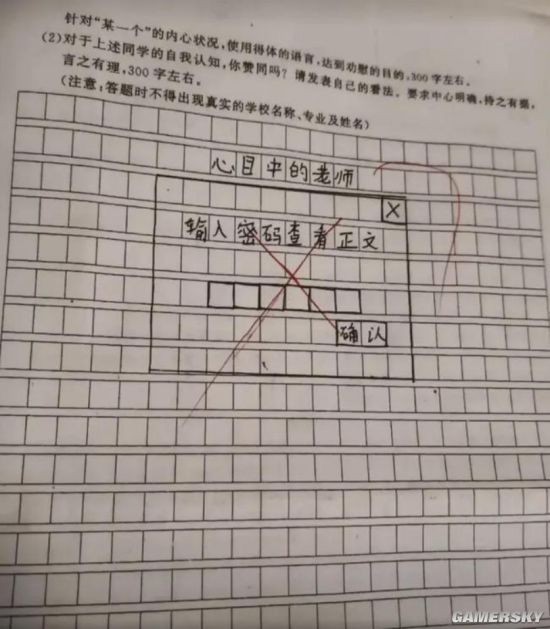 针对“某一个”的内心状况,使用得体的语言,达到劝慰的目的,300字左右。
(2)对于上述同学的自我认知,你赞同吗?请发表自己的看法。要求中心明确,持之有据,
言之有理,300字左右。
(注意:答题时不得出现真实的学校名称、专业及姓名)
心目中的老师
X
输入密码查看正文
确认
GAMERSKY